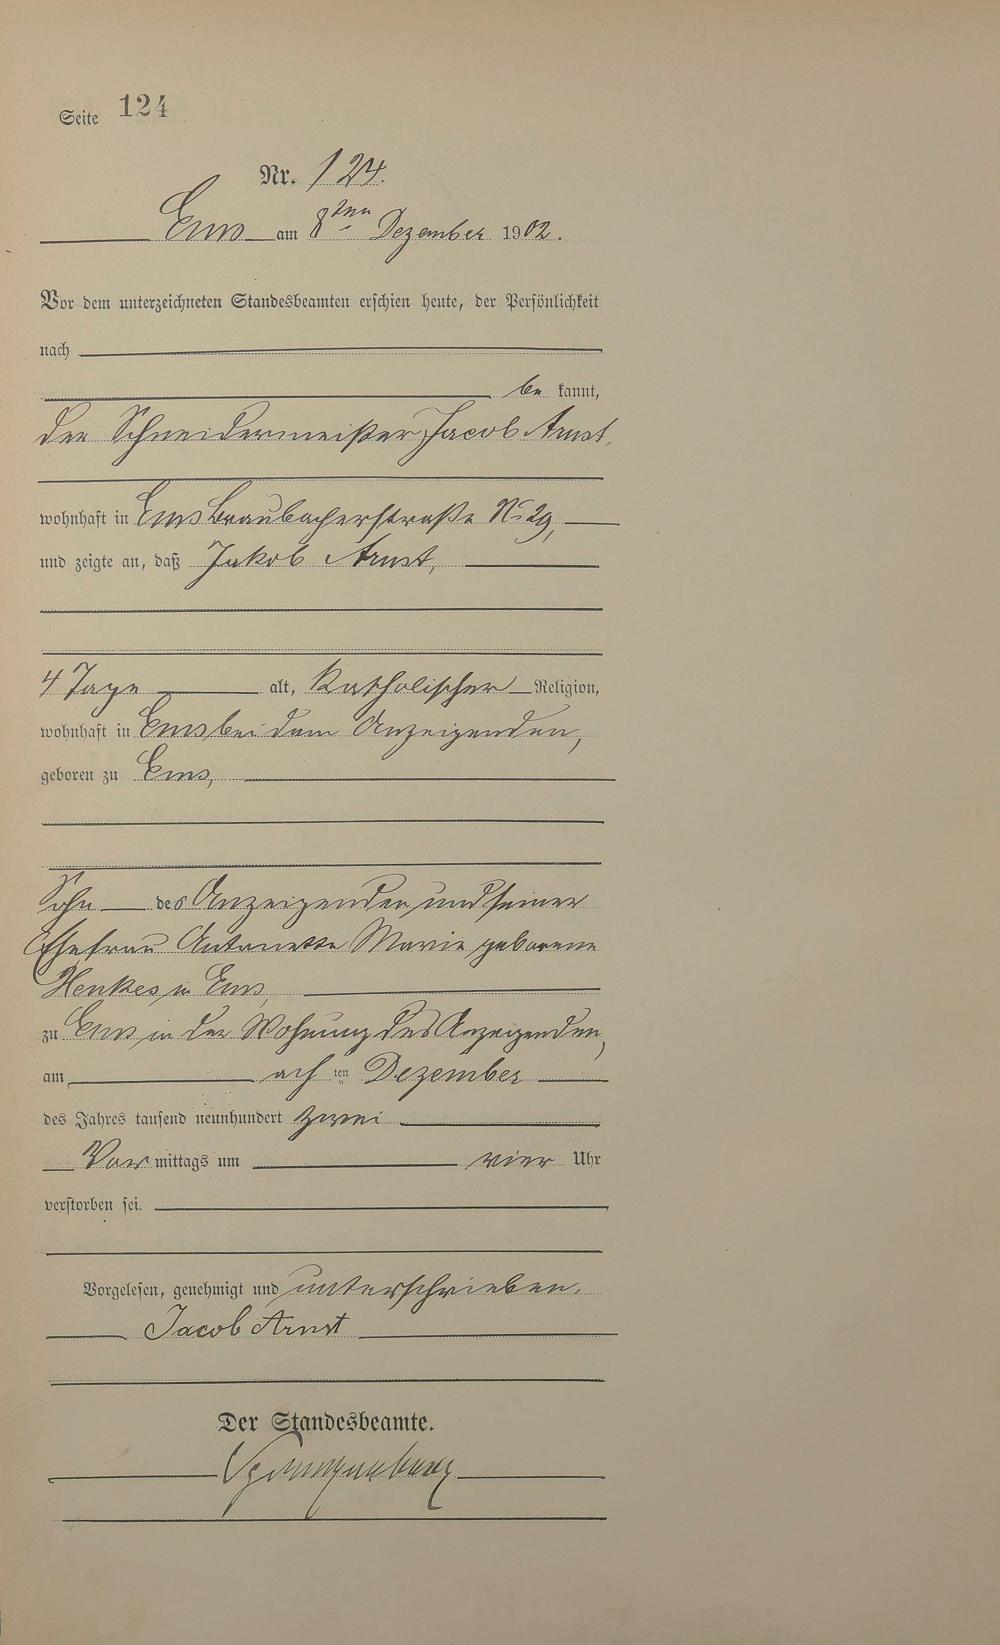 Seite 124
Nr. 124.
Ems am 8ten Dezember 1902.
Vor dem unterzeichneten Standesbeamten erschien heute, der Persönlichkeit
nach
be kannt,
der Schneidermeister Jacob Arnst,
wohnhaft in Ems Braubacherstraße No 29,
und zeigte an, daß Jakob Arnst,
4 Tage alt, katholischer Religion,
wohnhaft in Ems bei dem Anzeigenden,
geboren zu Ems,
Sohn des Anzeigenden und seiner
Ehefrau Antonette Marie geborene
Henkes in Ems,
zu Ems in der Wohnung des Anzeigenden,
am acht ten Dezember
des Jahres tausend neunhundert zwei
Vor mittags um vier Uhr
verstorben sei.
Vorgelesen, genehmigt und unterschrieben.
Jacob Arnst
Der Standesbeamte.